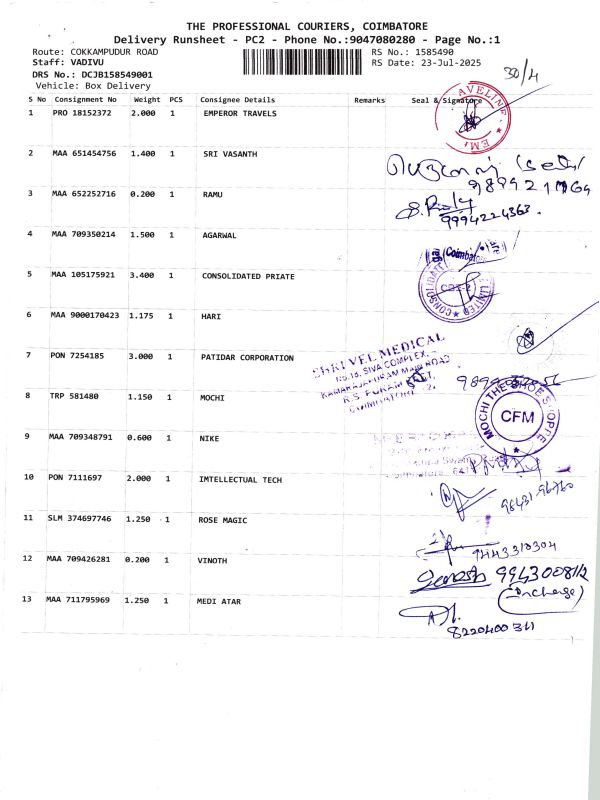 THE PROFESSIONAL COURIERS, COIMBATORE
Delivery Runsheet - PC2 - Phone No.:9047080280 - Page No.:1
Route: COKKAMPUDUR ROAD RS No.: 1585490
Staff: VADIVU RS Date: 23-Jul-2025
DRS No.: DCJB158549001
Vehicle: Box Delivery
30/4
S No Consignment No Weight PCS Consignee Details Remarks Seal & Signature
1 PRO 18152372 2.000 1 EMPEROR TRAVELS
AVELINE
2 MAA 651454756 1.400 1 SRI VASANTH
3 MAA 652252716 0.200 1 RAMU
9994224363.
4 MAA 709350214 1.500 1 AGARWAL
Coimbatore
5 MAA 105175921 3.400 1 CONSOLIDATED PRIATE
6 MAA 9000170423 1.175 1 HARI
7 PON 7254185 3.000 1 PATIDAR CORPORATION
SHRI VEL MEDICAL
No.18, SIVA COMPLEX,
KAMARAJAPURAM MAIN ROAD
8 TRP 581480 1.150 1 MOCHI
MOCHI THE SHOE SHOPPE
CFM
9 MAA 709348791 0.600 1 NIKE
10 PON 7111697 2.000 1 IMTELLECTUAL TECH
98431 96760
11 SLM 374697746 1.250 1 ROSE MAGIC
9443310304
12 MAA 709426281 0.200 1 VINOTH
Ganesh 9943008112
(Incharge)
13 MAA 711795969 1.250 1 MEDI ATAR
8220400311